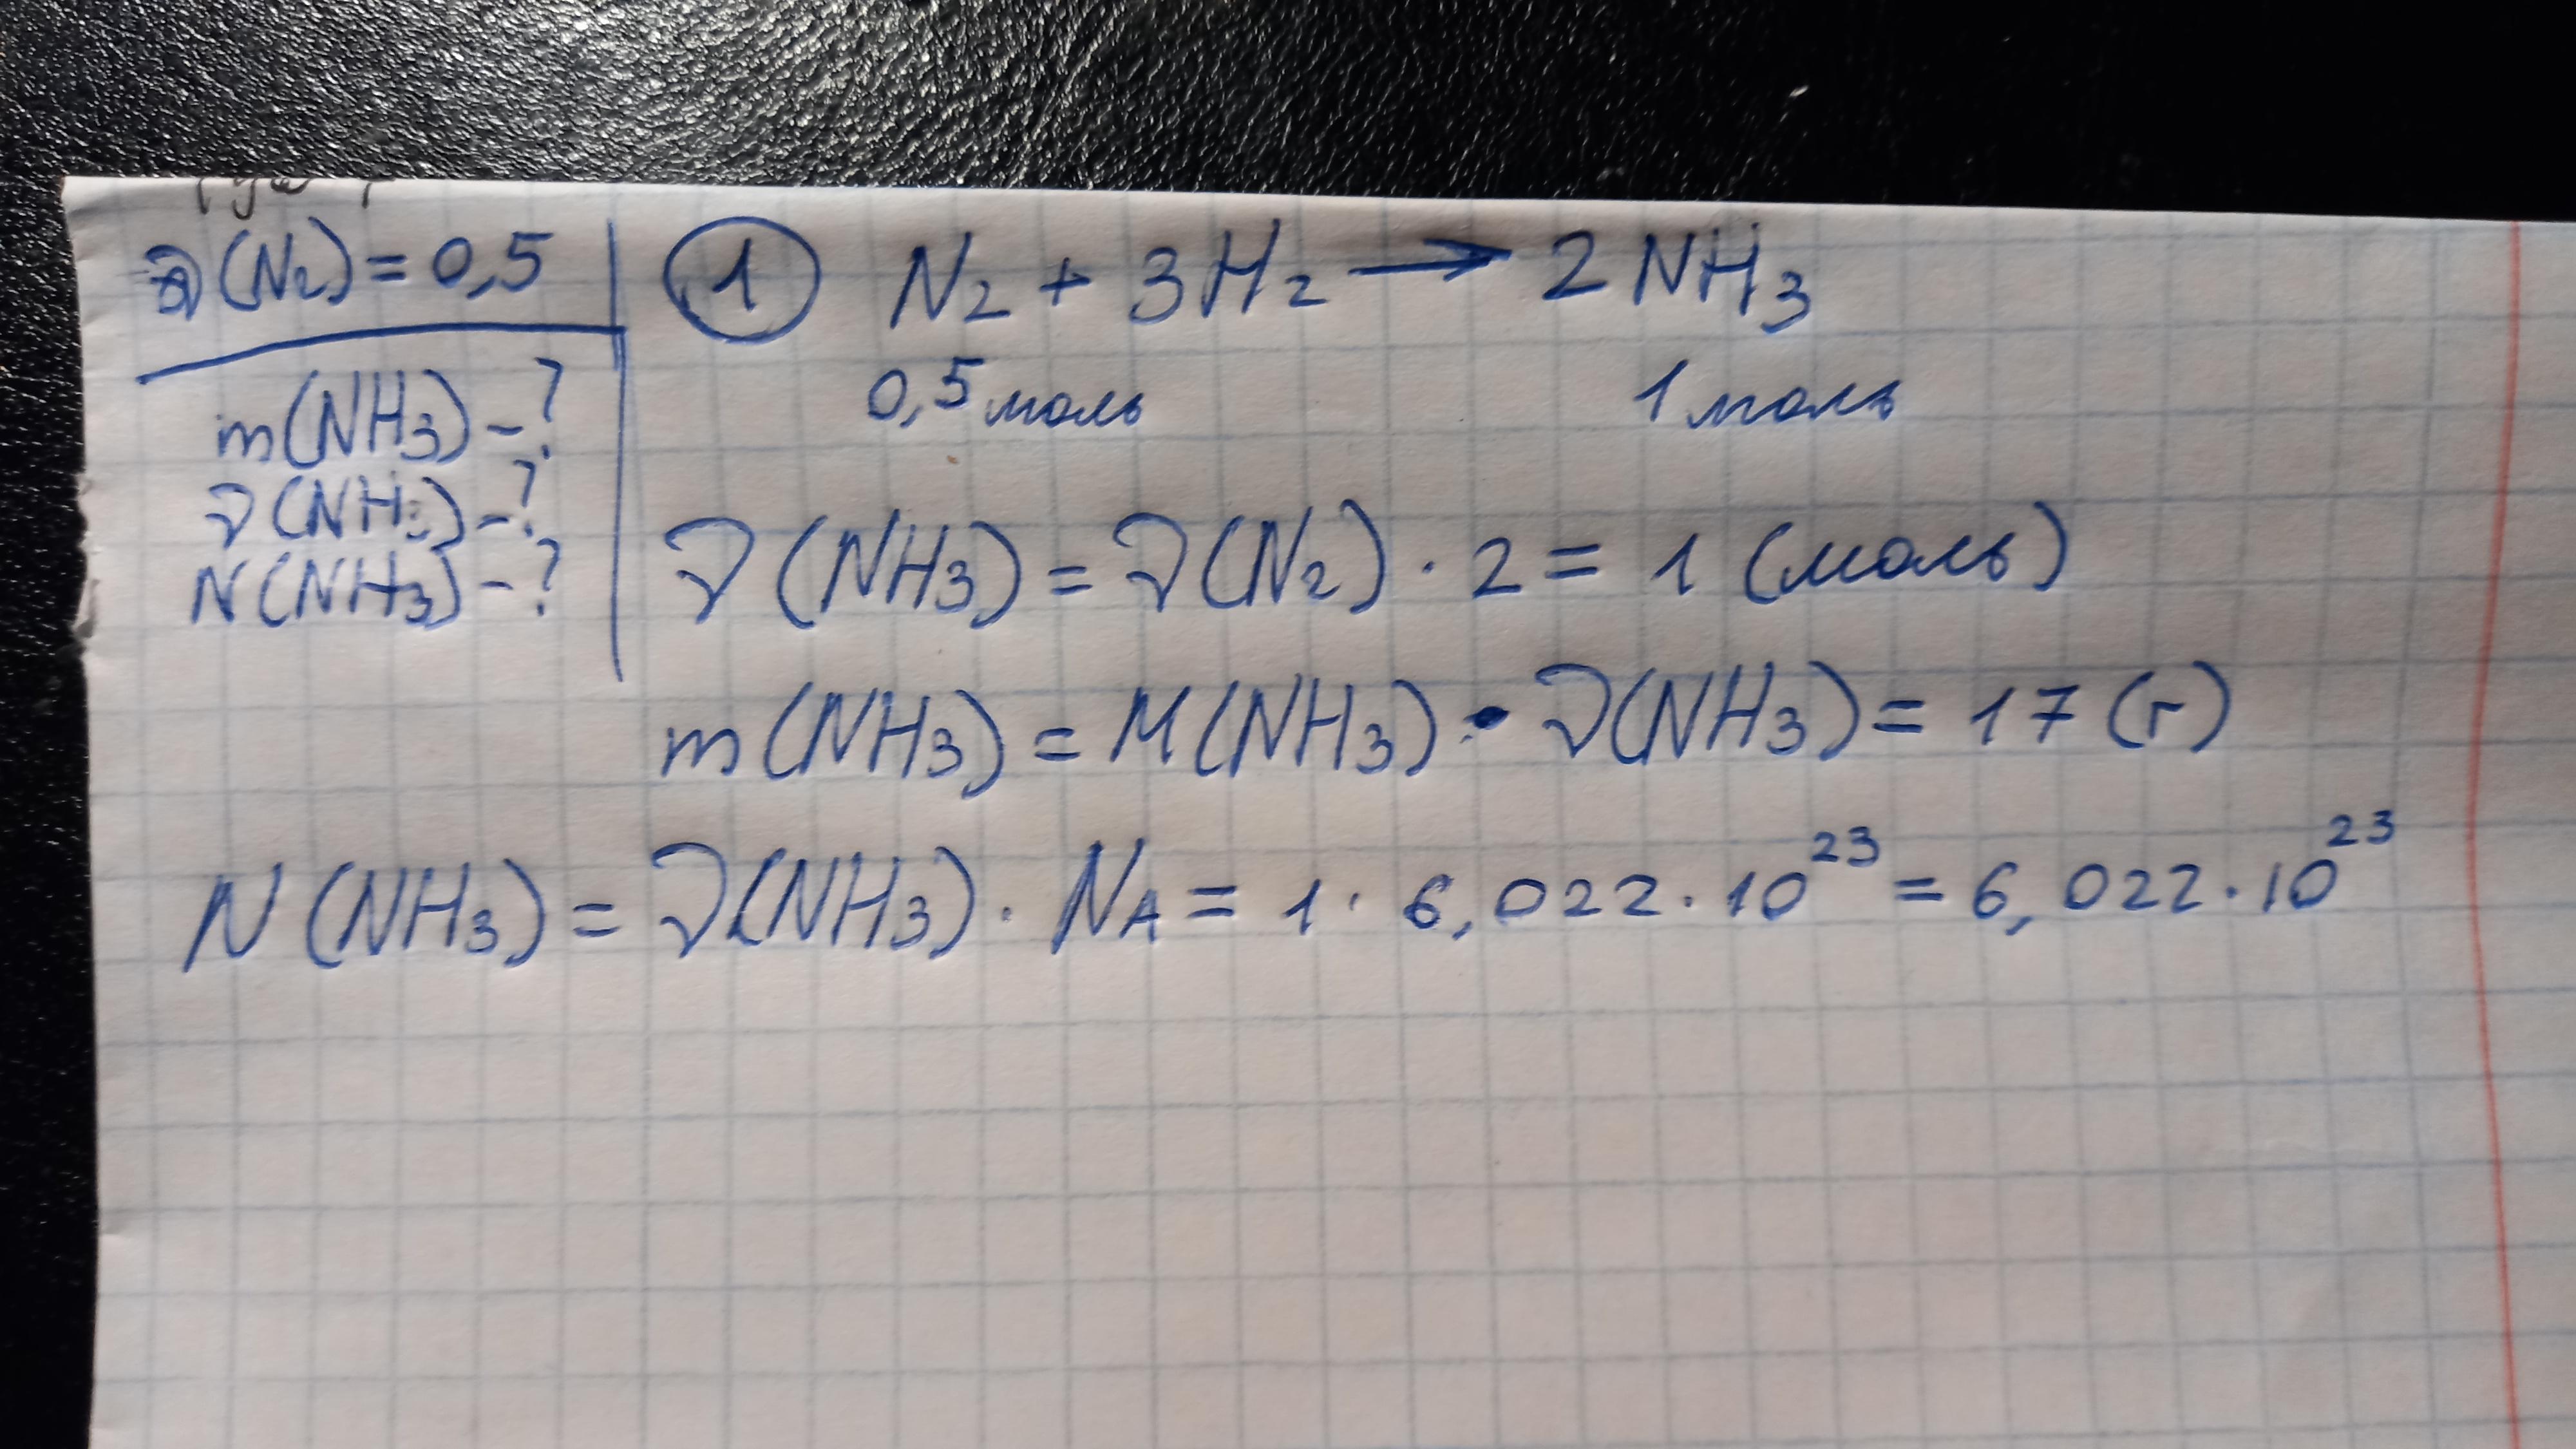 ν(N₂) = 0,5
m(NH₃) - ?
ν(NH₃) - ?
N(NH₃) - ?
1 N₂ + 3H₂ → 2NH₃
0,5 моль 1 моль
ν(NH₃) = ν(N₂) · 2 = 1 (моль)
m(NH₃) = M(NH₃) · ν(NH₃) = 17 (г)
N(NH₃) = ν(NH₃) · Nᴀ = 1 · 6,022 · 10²³ = 6,022 · 10²³